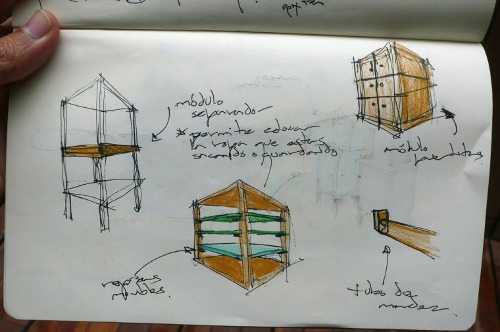 módulo
separador
* permite colocar
la ropa que estás
secando o guardando
módulo
repisas
móviles.
tubo de